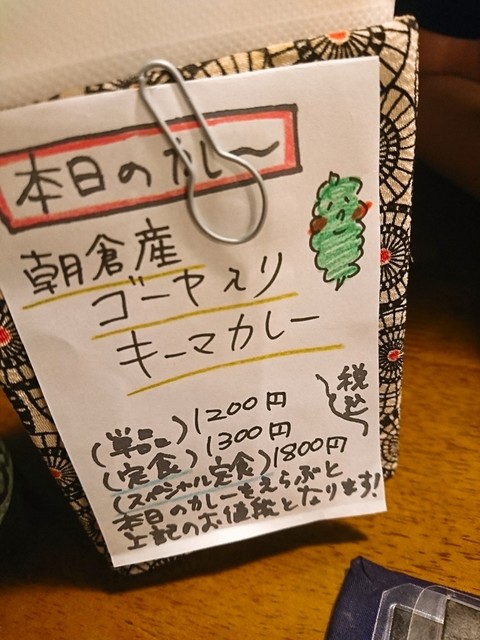 本日のカレ〜
朝倉産
ゴーヤ入り
キーマカレー
税込
(単品) 1200円
(定食) 1300円
(スペシャル定食) 1800円
本日のカレーをえらぶと
上記のお値段となります!